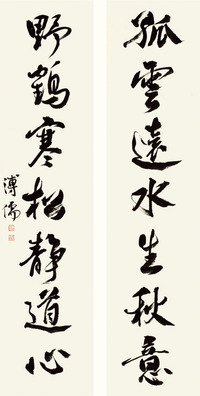 孤雲遠水生秋意
野鶴寒松靜道心
溥儒